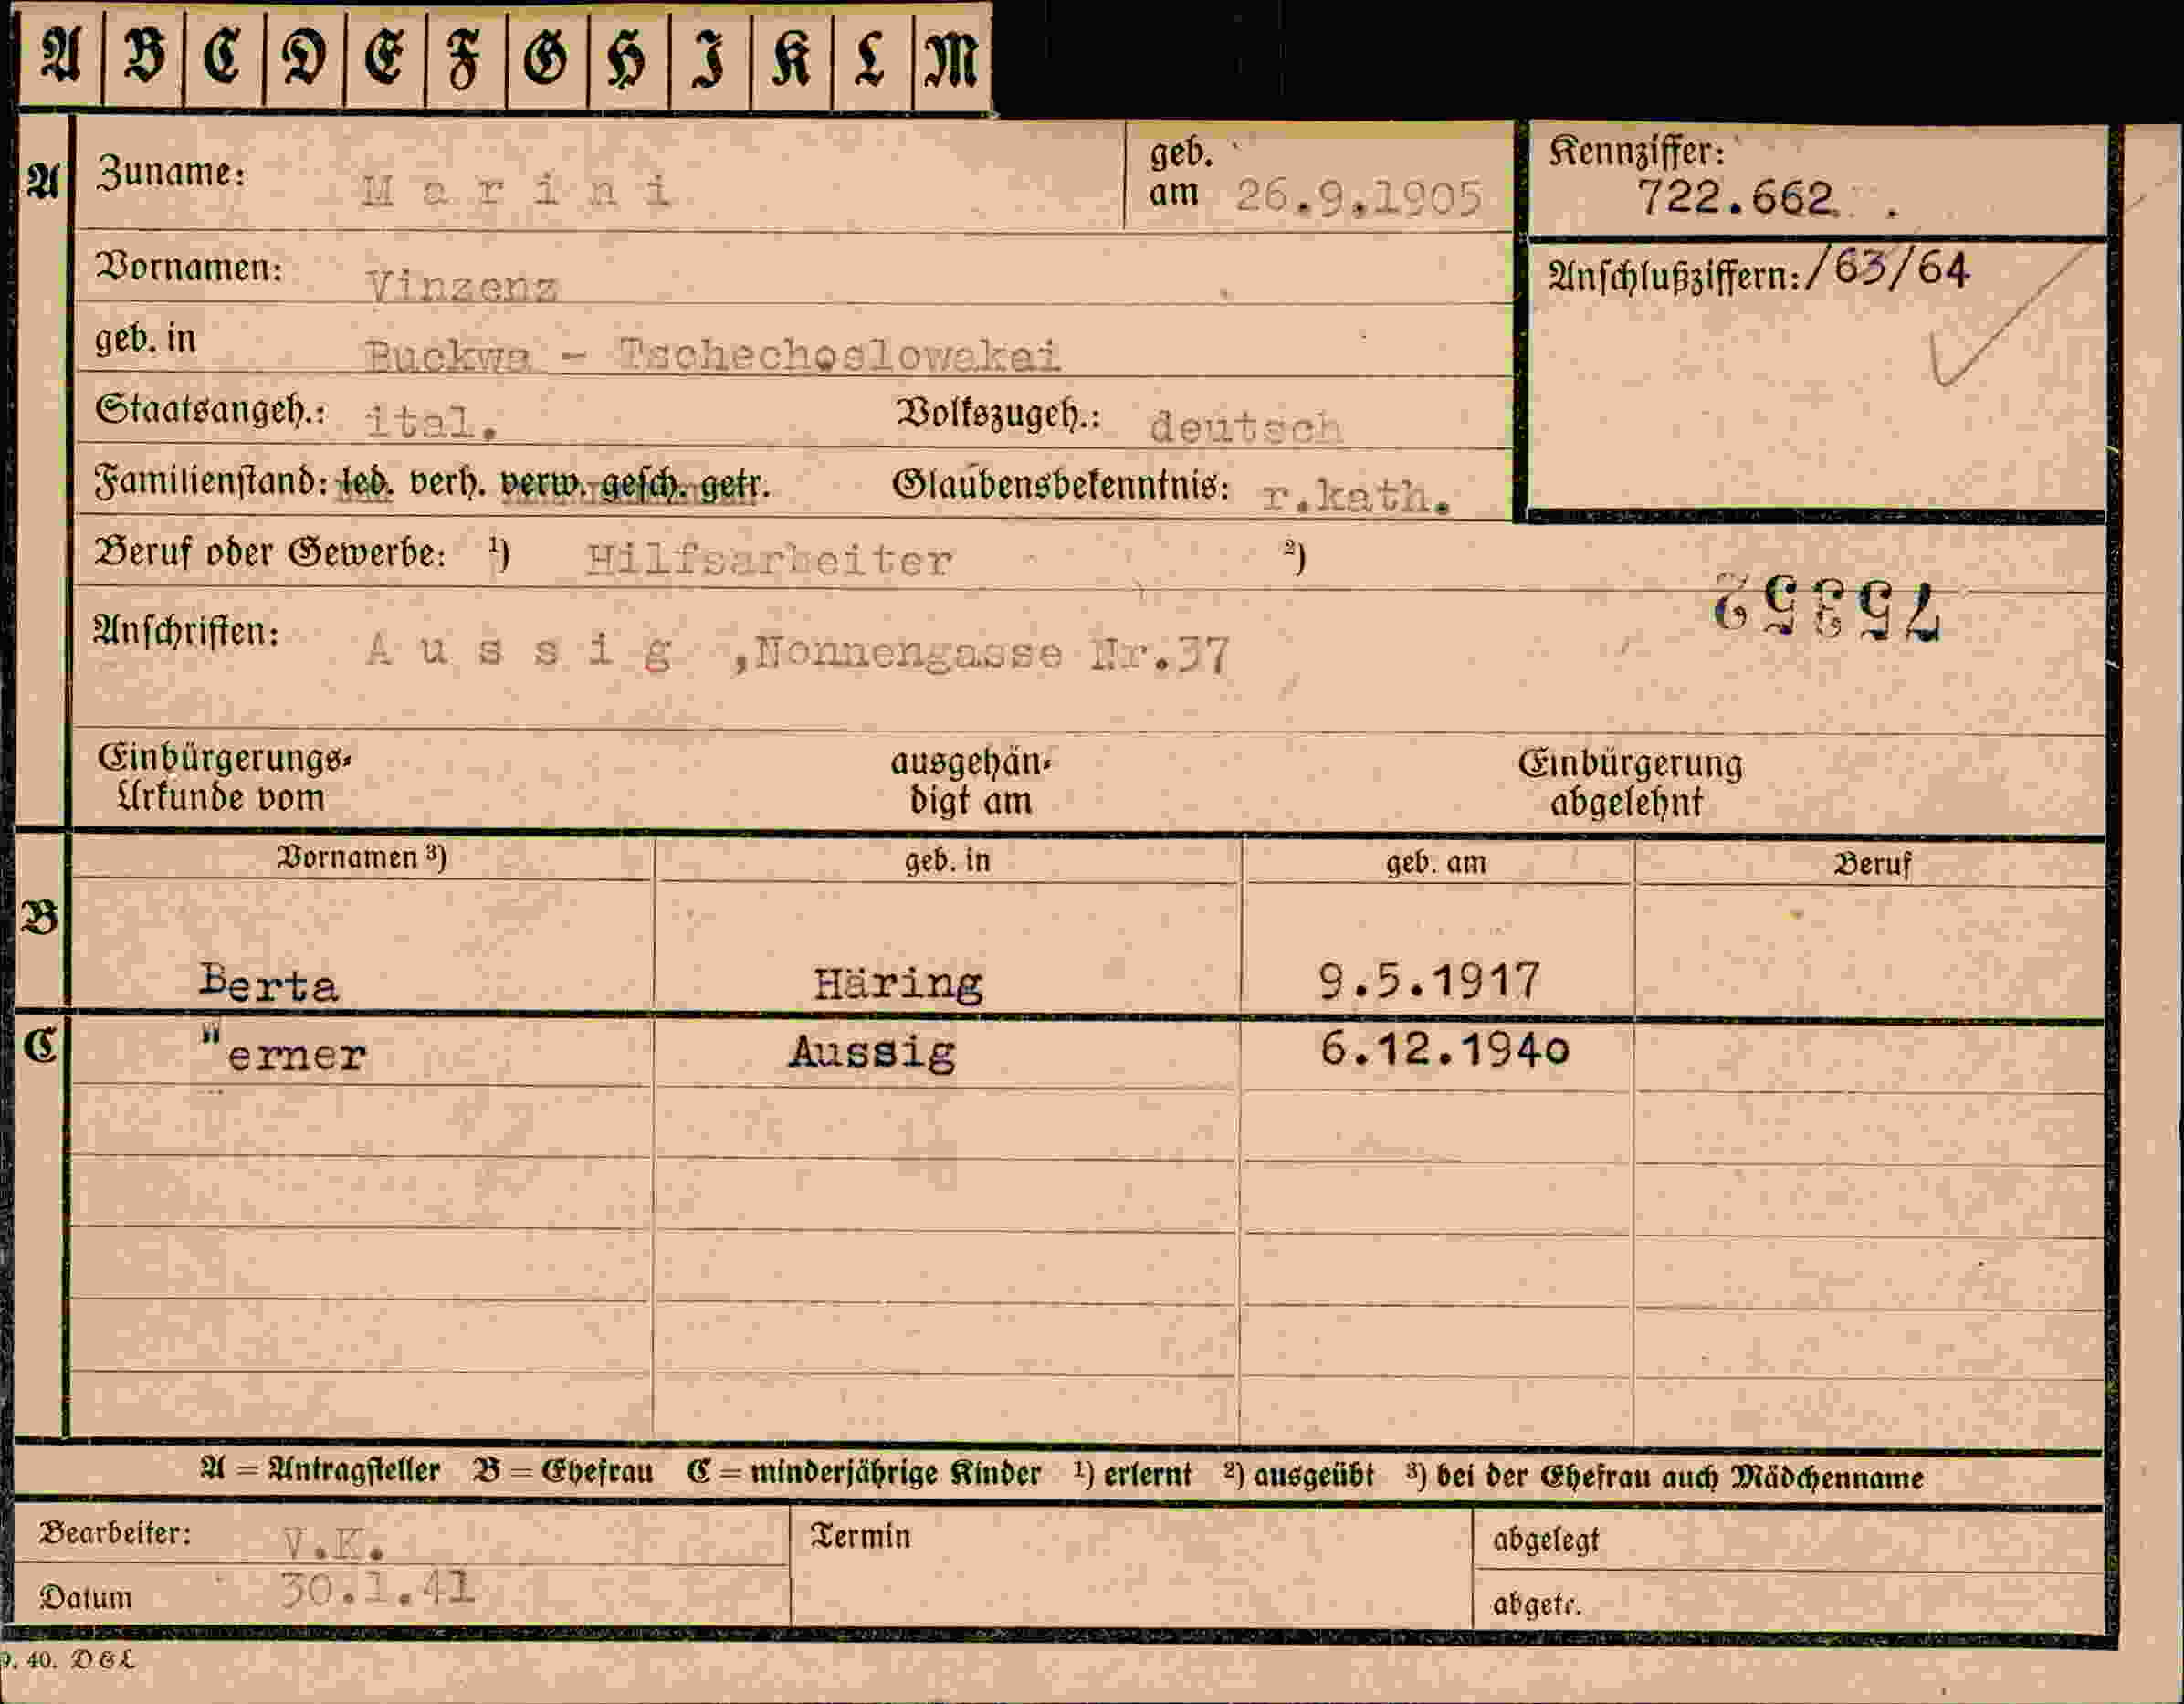 A B C D E F G H I K L M
A Zuname: Marini geb. am 26.9.1905 Kennziffer: 722.662
Vornamen: Vinzenz Anschlußziffern: /63/64
geb. in Puckwa - Tschechoslowakei
Staatsangeh.: ital. Volkszugeh.: deutsch
Familienstand: led. verh. verw. gesch. getr. Glaubensbekenntnis: r.kath.
Beruf oder Gewerbe: 1) Hilfsarbeiter 2)
75352
Anschriften: Aussig ,Nonnengasse Nr.37
Einbürgerungs- ausgehän- Einbürgerung
Urkunde vom digt am abgelehnt
Vornamen 3) geb. in geb. am Beruf
B
Berta Häring 9.5.1917
C "erner Aussig 6.12.194o
A = Antragsteller B = Ehefrau C = minderjährige Kinder 1) erlernt 2) ausgeübt 3) bei der Ehefrau auch Mädchenname
Bearbeiter: V.K. Termin abgelegt
Datum 30.1.41 abgetr.
9. 40. D & L